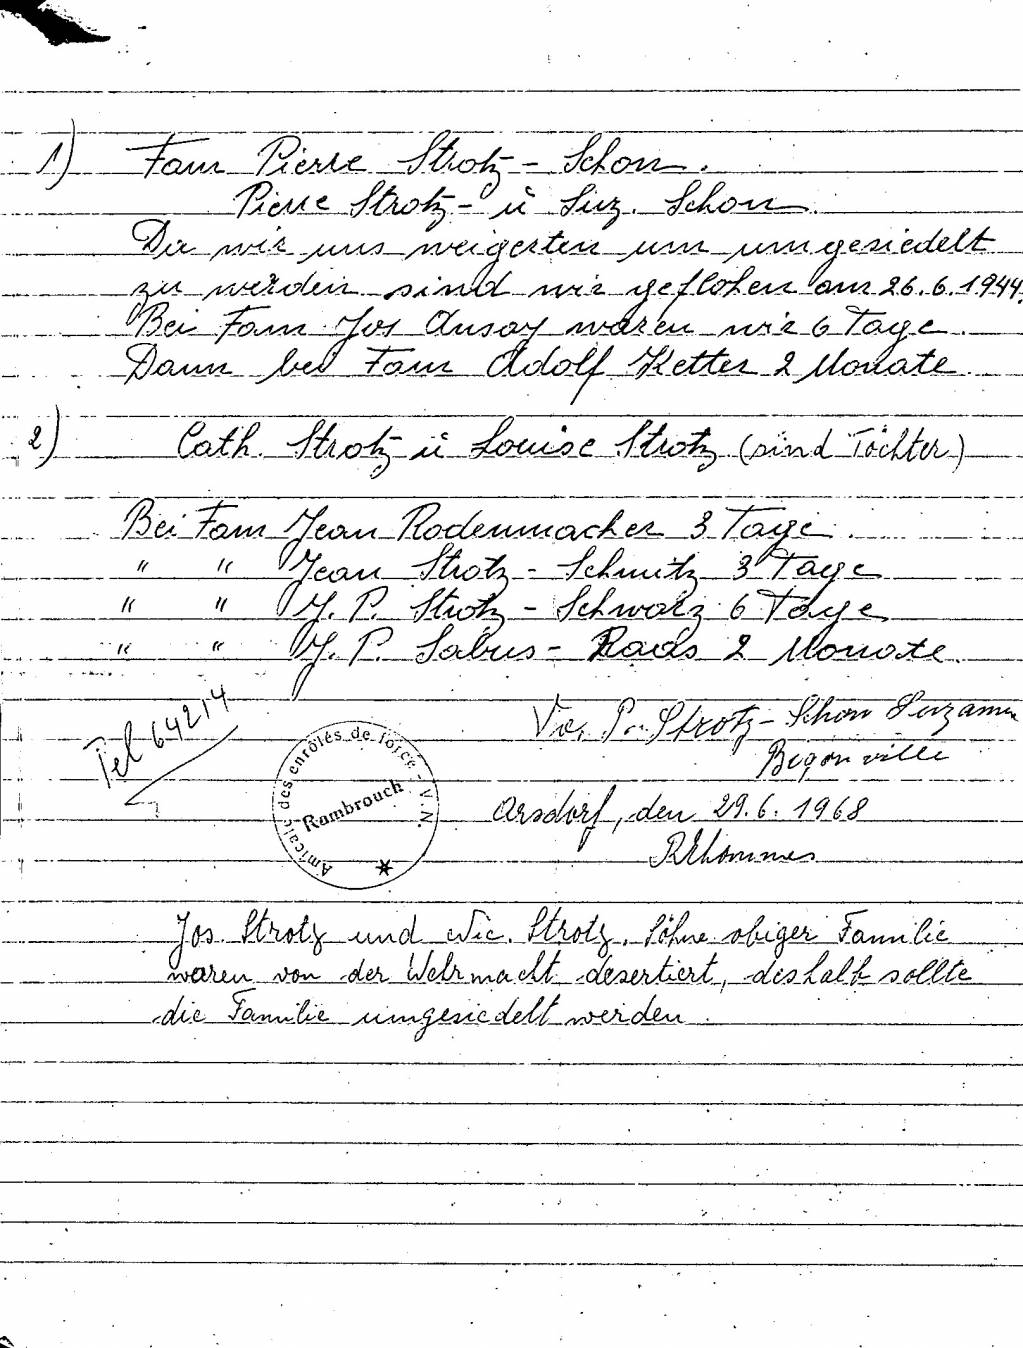 1) Fam Pierre Strotz - Schon.
Pierre Strotz - ü Suz. Schon.
Da wir uns weigerten um umgesiedelt
zu werden sind wir geflohen am 26.6.1944.
Bei Fam Jos Ansay waren wir 6 Tage.
Dann bei Fam Adolf Ketter 2 Monate.
2) Cath. Strotz ü Louise Strotz (sind Töchter)
Bei Fam Jean Rodenmacher 3 Tage.
" " Jean Strotz - Schmitz 3 Tage
" " J. P. Strotz - Schwarz 6 Tage
" " J. P. Sabus - 2 Monate.
Tel 64214
P. Strotz - Schon Suzanne
Bigonville
Amicale des enrôlés de force - V.N.
Rambrouch
Arsdorf, den 29.6.1968
Jos. Strotz und Nic. Strotz. Söhne obiger Familie
waren von der Wehrmacht desertiert, deshalb sollte
die Familie umgesiedelt werden.